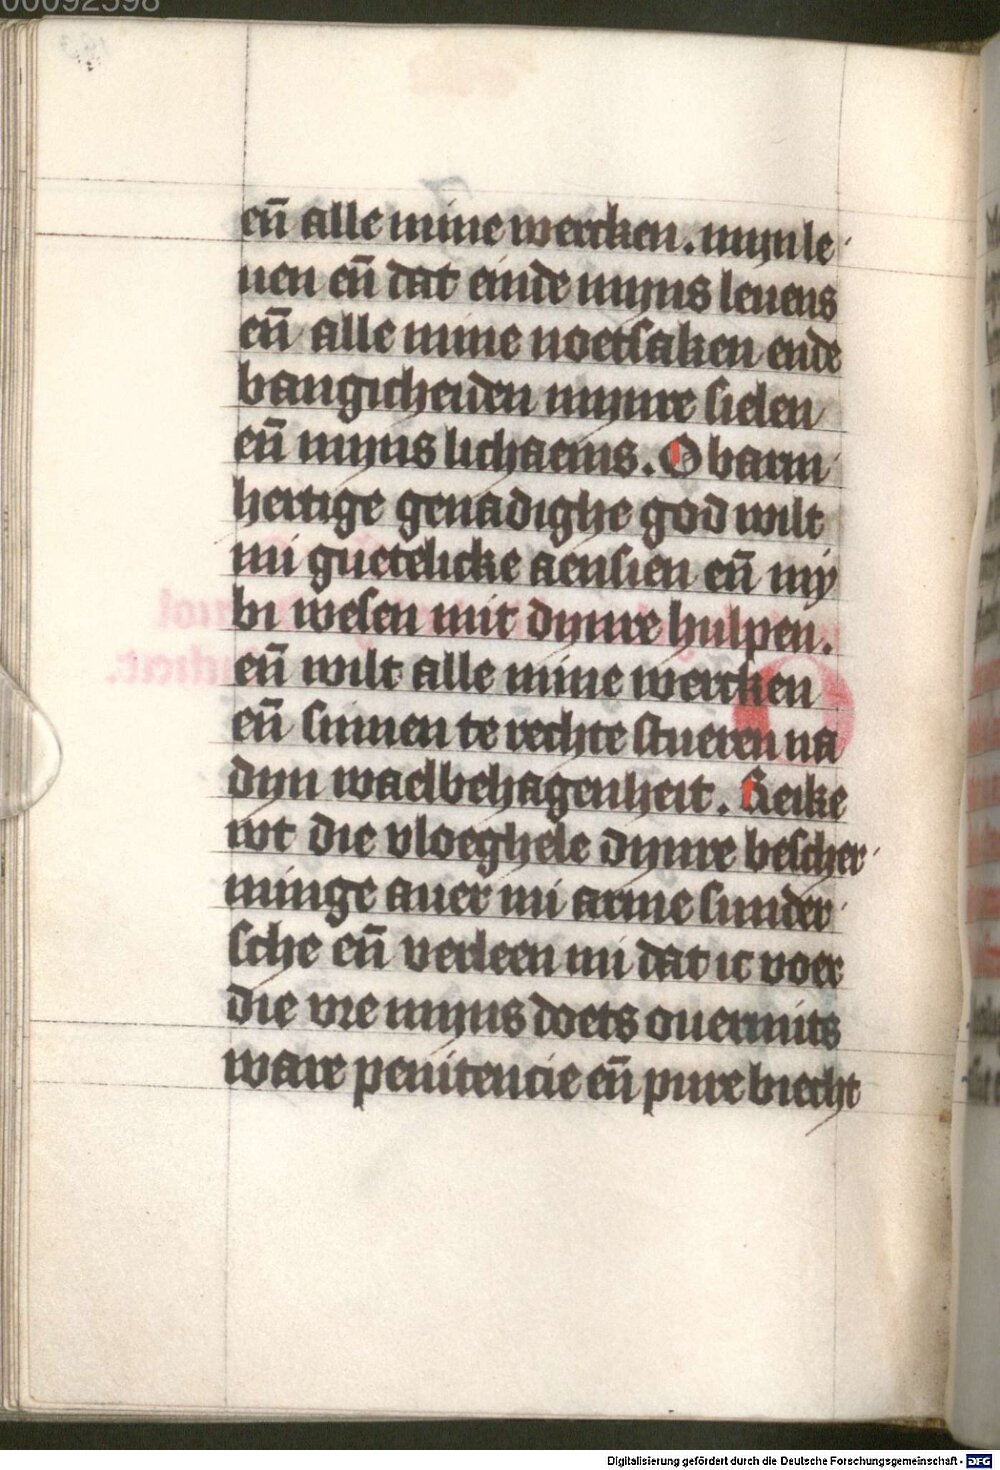 00092598
en̄ alle mine wercken. mijn le
uen en̄ dat einde mijns leuens
en̄ alle mine noetsaken ende
bangicheiden mijnre sielen
en̄ mijns lichaems. O barm
hertige genadighe god wilt
mi guetelicke aensien en̄ my
bi wesen mit dijnre hulpen.
en̄ wilt alle mine wercken
en̄ sinnen te rechte stueren na
dijn waelbehagenheit. Reike
wt die vloeghele dijnre bescher
minge auer mi arme sunder
sche en̄ verleen mi dat ic voer
die vre mijns doets ouermits
ware penitencie en̄ pure biecht
Digitalisierung gefördert durch die Deutsche Forschungsgemeinschaft - DFG